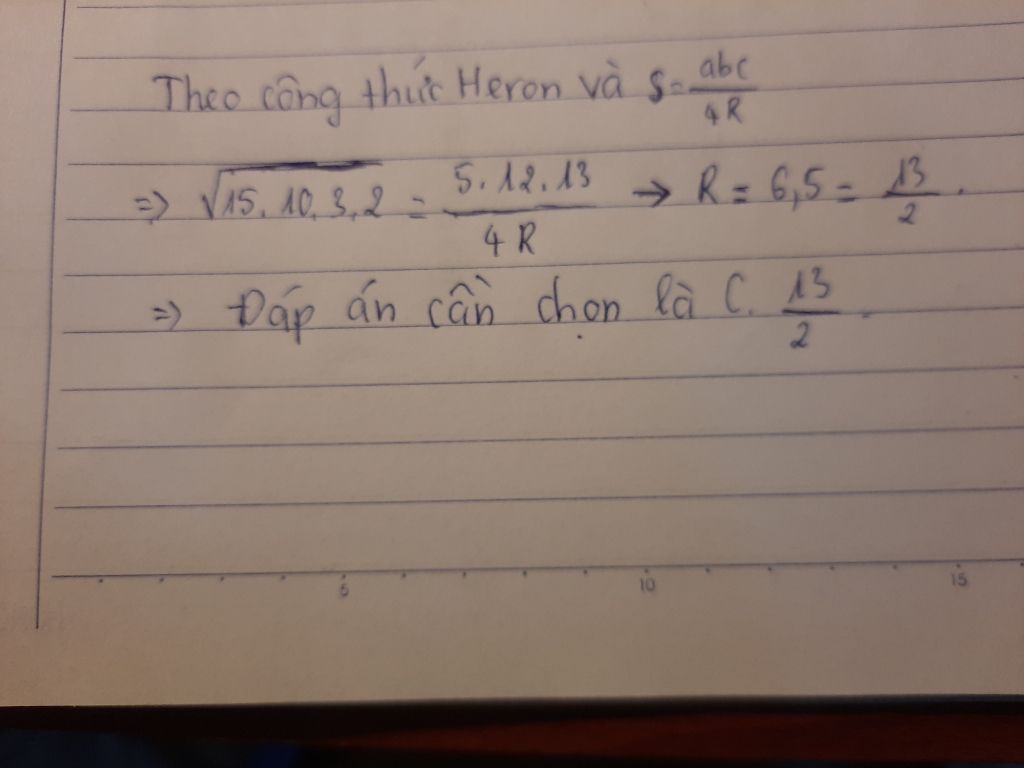 Theo công thức Heron và S = abc / 4R
=> √15.10.3.2 = 5.12.13 / 4R → R = 6,5 = 13/2.
=> Đáp án cần chọn là C. 13/2.
5 10 15